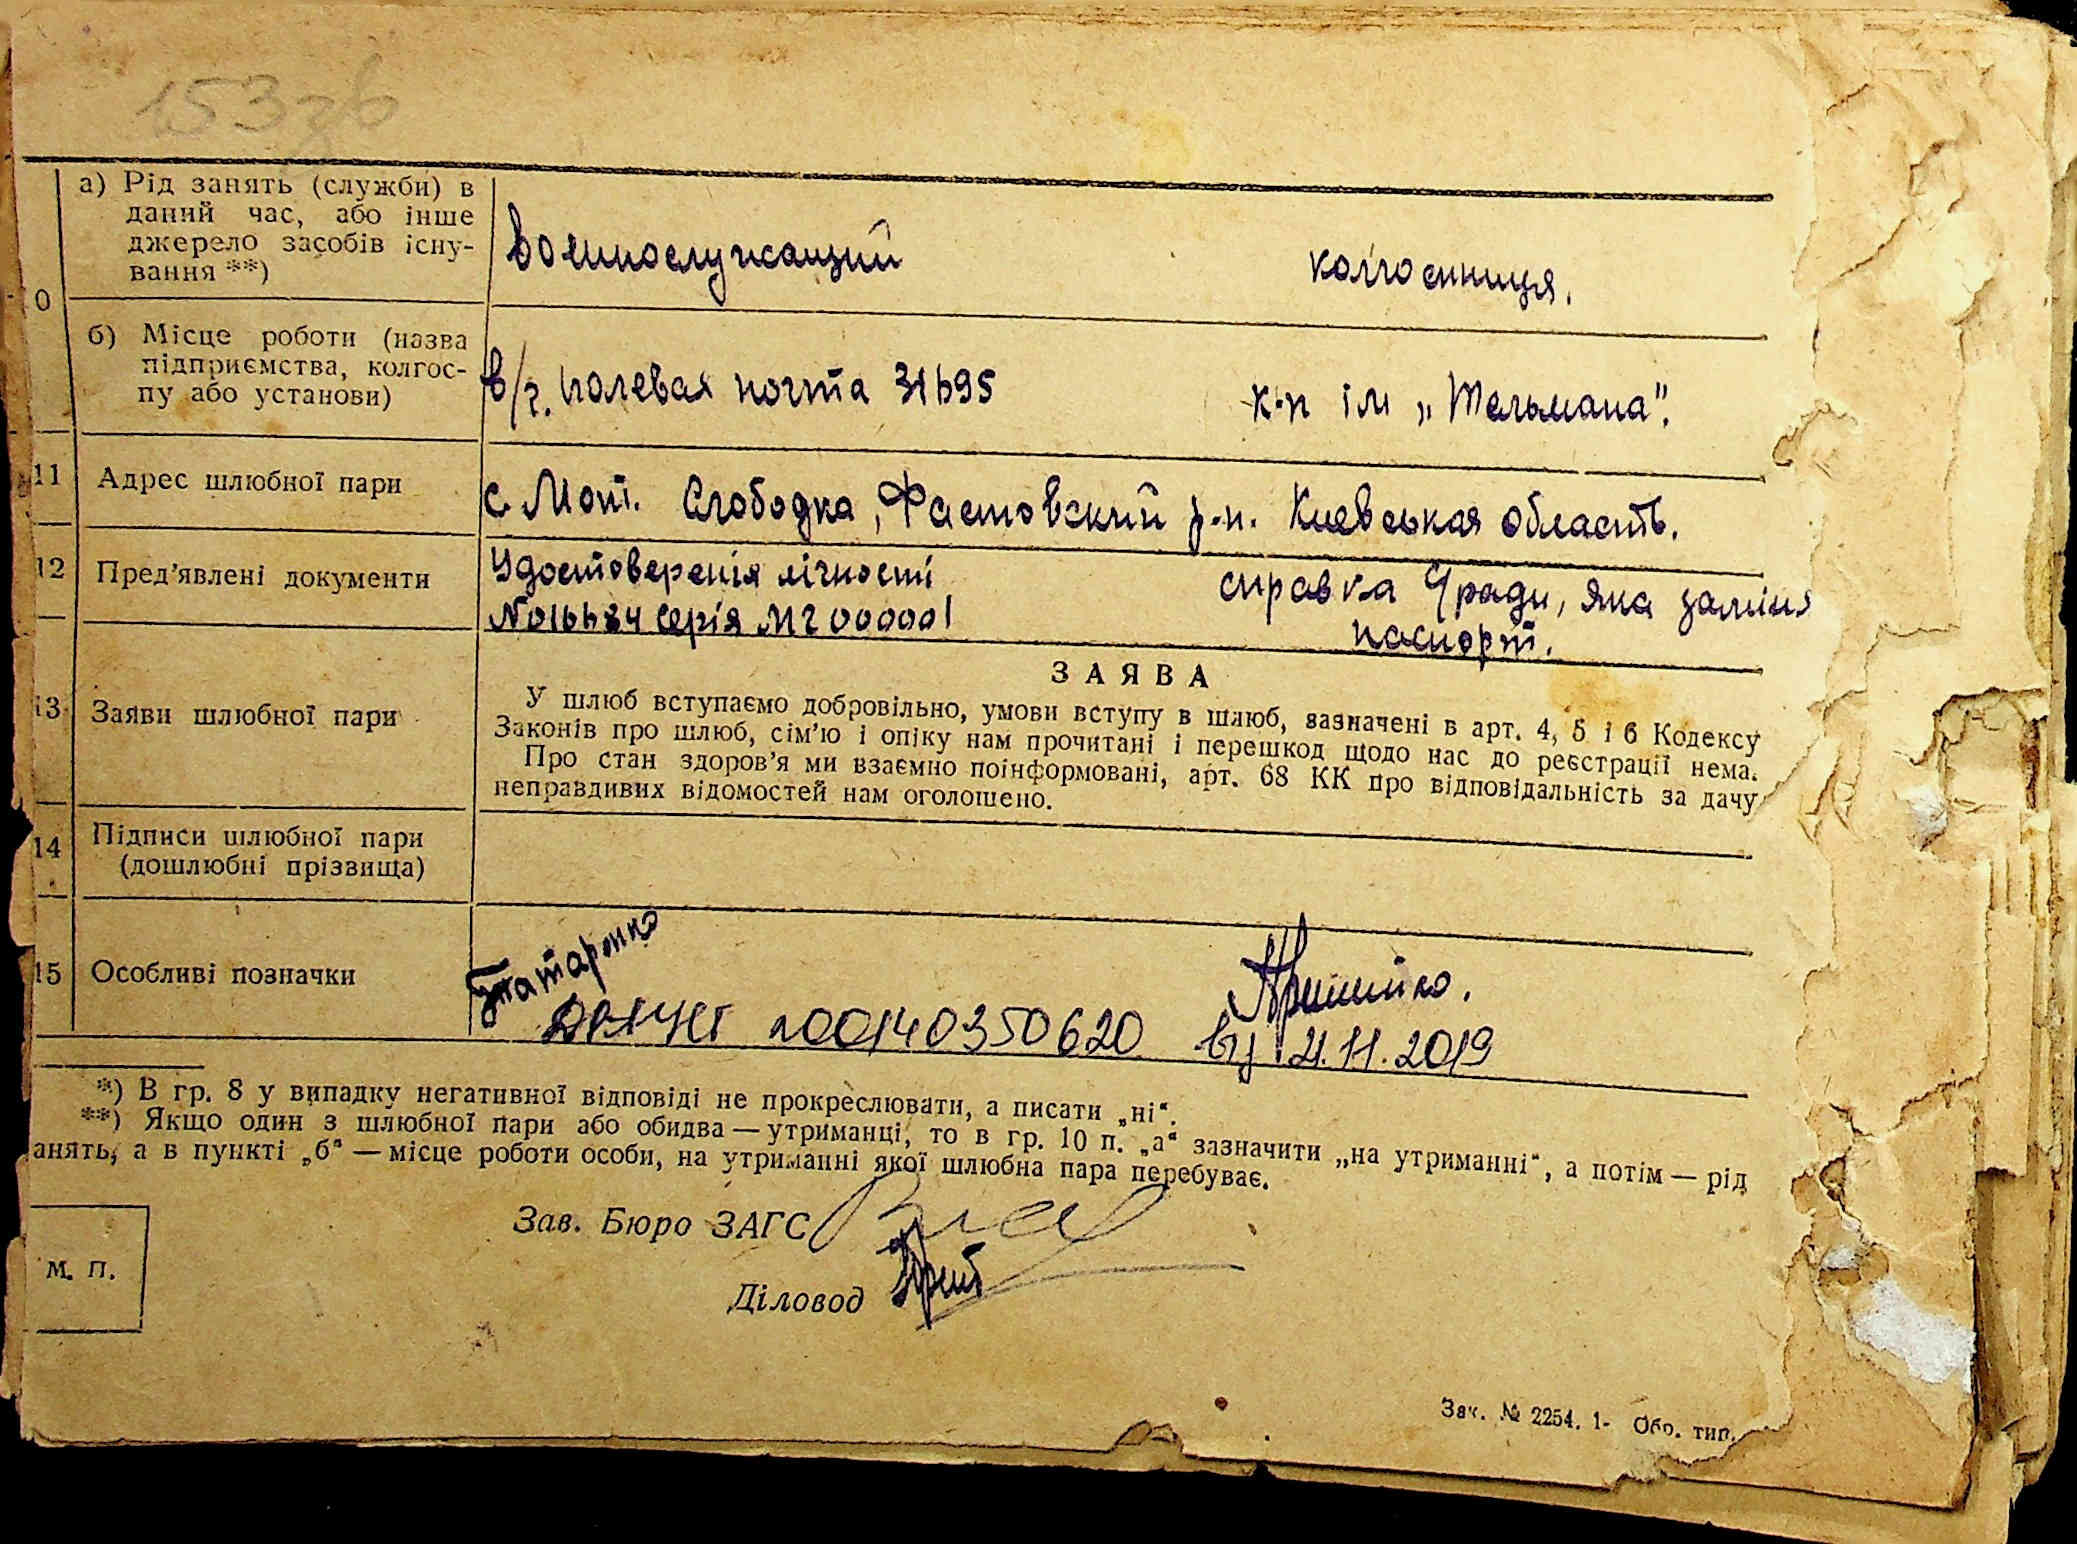 153зв
а) Рід занять (служби) в
даний час, або інше
джерело засобів існу-
вання **)
военнослужащий
колгоспниця.
0
б) Місце роботи (назва
підприємства, колгос-
пу або установи)
в/ч. полевая почта
к-п ім „Тельмана".
11 Адрес шлюбної пари
с. Мот. Слободка, Фастовский р-н. Киевськая область.
12 Пред'явлені документи
Удостоверенія лічності
справка Уради, яка заміня
серія МГ 000001
паспорт.
ЗАЯВА
13 Заяви шлюбної пари
У шлюб вступаємо добровільно, умови вступу в шлюб, зазначені в арт. 4, 5 і 6 Кодексу
Законів про шлюб, сім'ю і опіку нам прочитані і перешкод щодо нас до реєстрації нема.
Про стан здоров'я ми взаємно поінформовані, арт. 68 КК про відповідальність за дачу
неправдивих відомостей нам оголошено.
14 Підписи шлюбної пари
(дошлюбні прізвища)
15 Особливі позначки
Татаренко
00140350620 від 21.11.2019
*) В гр. 8 у випадку негативної відповіді не прокреслювати, а писати „ні“.
**) Якщо один з шлюбної пари або обидва — утриманці, то в гр. 10 п. „а“ зазначити „на утриманні“, а потім — рід
анять, а в пункті „б“ — місце роботи особи, на утриманні якої шлюбна пара перебуває.
Зав. Бюро ЗАГС
М. П.
Діловод
Зак. № 2254. 1- Обр. тип.